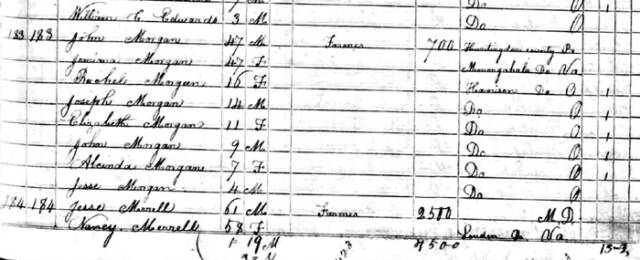 Do
William C. Edwards 3 M Do O
183 183 John Morgan 47 M Farmer 700 Huntingdon county Pa
Jemima Morgan 47 F Monongahela Do Va
Rachel Morgan 16 F Harrison Do O 1
Joseph Morgan 14 M Do O 1
Elizabeth Morgan 11 F Do O 1
John Morgan 9 M Do O 1
Alcinda Morgan 7 F Do O 1
Jesse Morgan 4 M Do O
184 184 Jesse Merrell 61 M Farmer 2500 M.D.
Nancy Merrell 58 F Va
19 M 4500